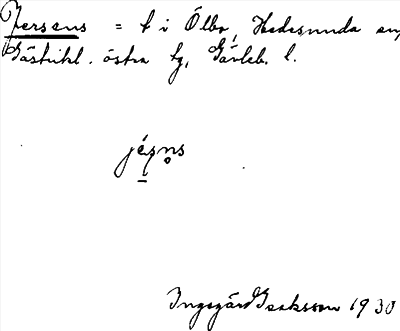 Jersens = t i Ölbo, Hedesunda sn,
Gästrikl. östra tg, Gävleb. l.
jésns
Ingegärd Isaksson 1930